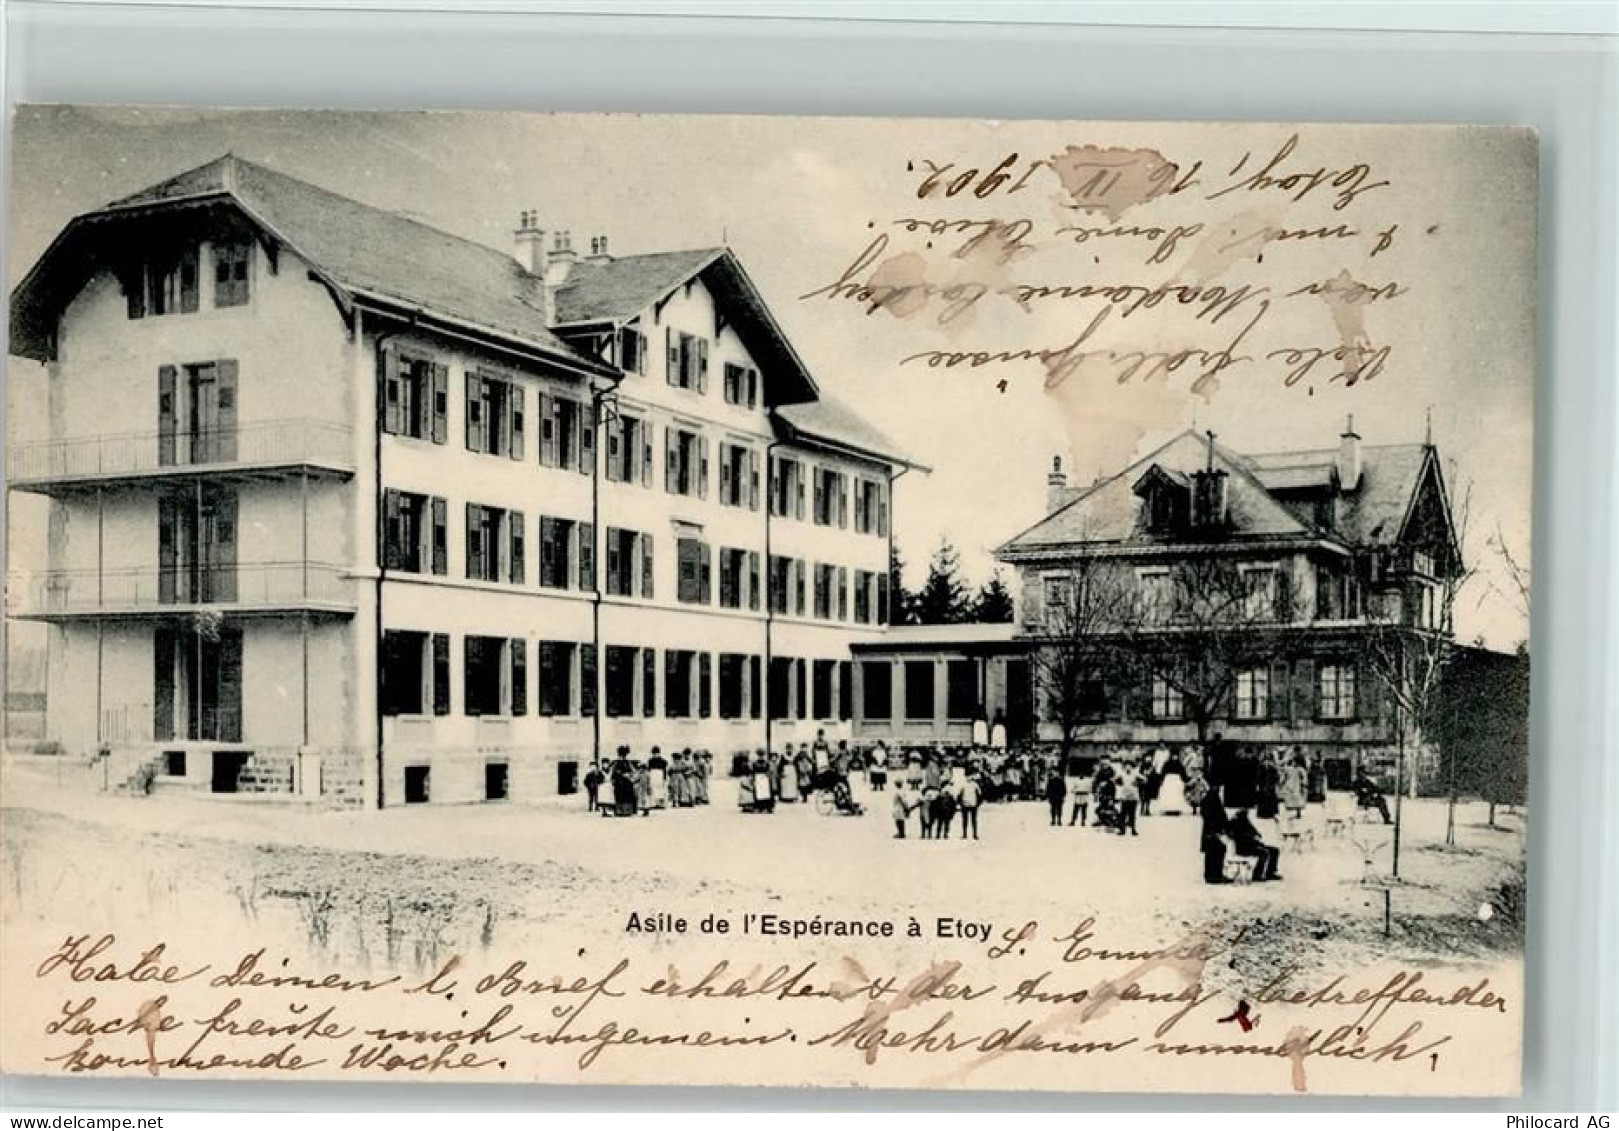 Asile de l'Espérance à Etoy
L. Emma!
Habe Deinen l. Brief erhalten & der Ausgang betreffender
Sache freute mich ungemein. Mehr dann mündlich,
kommende Woche.
1
Viele frdl. Grüsse
von Madame
& mir. Deine Elise.
Etoy, 16 IV 1902.
Philocard AG